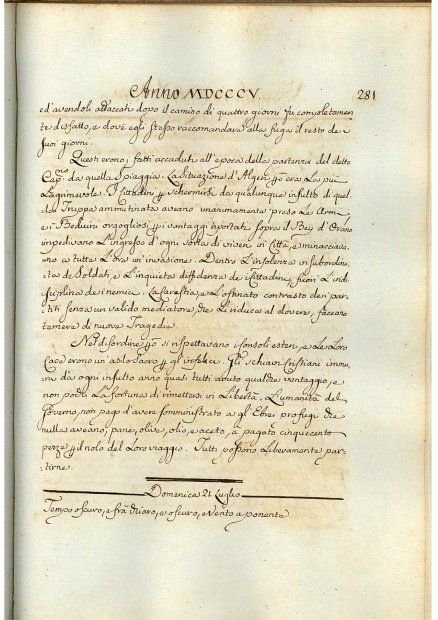 Anno MDCCCV. 281
ed'avendoli attaccati dopo il camino di quattro giorni fu completamen
te disfatto, e dové egli stesso raccomandare alla fuga il resto de i
suoi giorni.
Questi erono i fatti accaduti all'epoca della partenza del detto
Cap.no da quella Spiaggia. La situazione d'Algeri era La più
Lagrimevole. I Cittadini schermirsi da qualunque insulto di quel
Truppa ammutinata aveano unanimamente preso Le Arme,
e i Beduini orgogliosi i vantaggi riportati sopra il Bey d'Orano
impedivano L'ingresso d'ogni sorta di viveri in Città, e minacciava
no a tutte L'ore un'invasione. Dentro L'insolenza insubordina
ta de Soldati, e L'inquieta diffidenza de Cittadini, fuori L'indi
sciplina de i nemici. La Carestia, e L'ostinato contrasto de i par
titi senza un valido mediatore, che Li riduca al dovere, faceano
temere di nuove Tragedie.
Nel disordine si rispettavano i Consoli esteri, e Le Loro
Case erono un asilo sacro gl'infelici. Gli schiavi Cristiani immu
ni da ogni insulto anno quasi tutti avuto qualche vantaggio, e
non pochi La fortuna di rimettersi in Libertà. L'umanità del
Governo, non pago d'avere somministrato a gl'Ebrei profugi che
nulla aveano, pane, olive, olio, e aceto, à pagato cinquecento
pezze il nolo del Loro viaggio. Tutti possono Liberamente par
tirne.
Domenica 21 Luglio
Tempo oscuro, e frà chiaro, e oscuro, e Vento a ponente